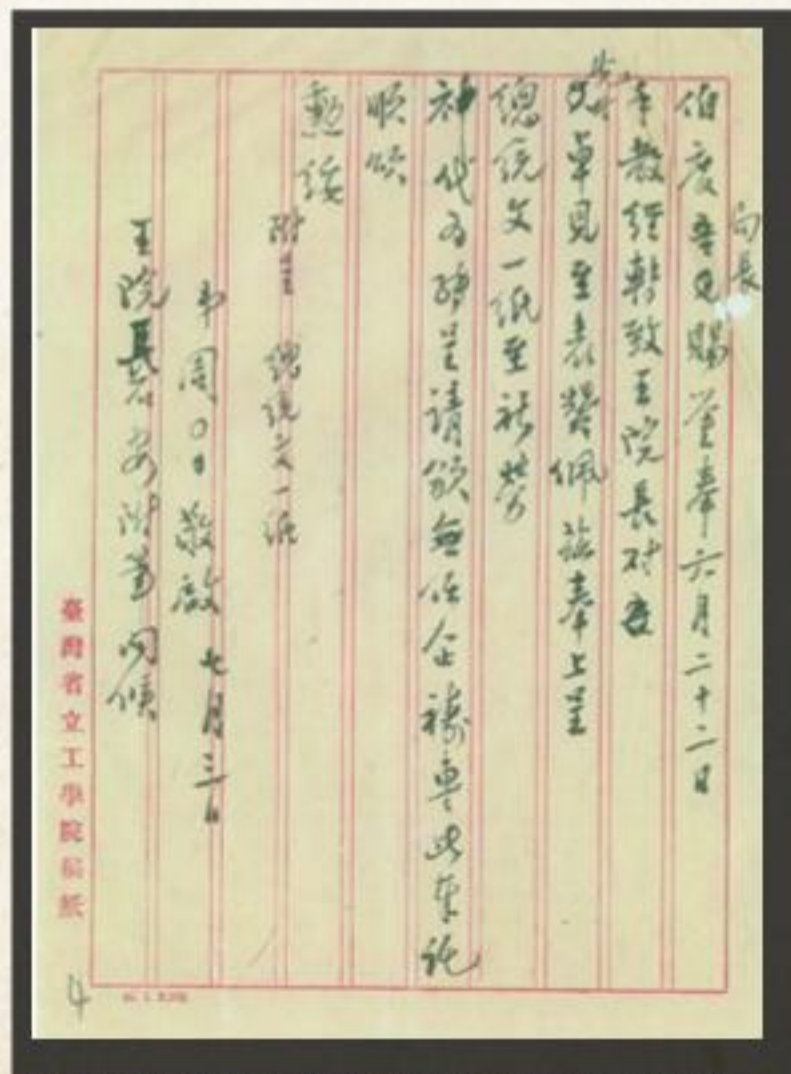 局長
伯度吾兄賜鑒奉六月二十二日
手教經轉致王院長對
卓見至表贊佩茲奉上呈
總統文一紙至祈勞
神代為轉呈請頒無任企禱專此奉託
順頌
勳綏
附呈 總統文一紙
弟周〇〇敬啟 七月三日
王院長石安附筆問候
臺灣省立工學院稿紙
4